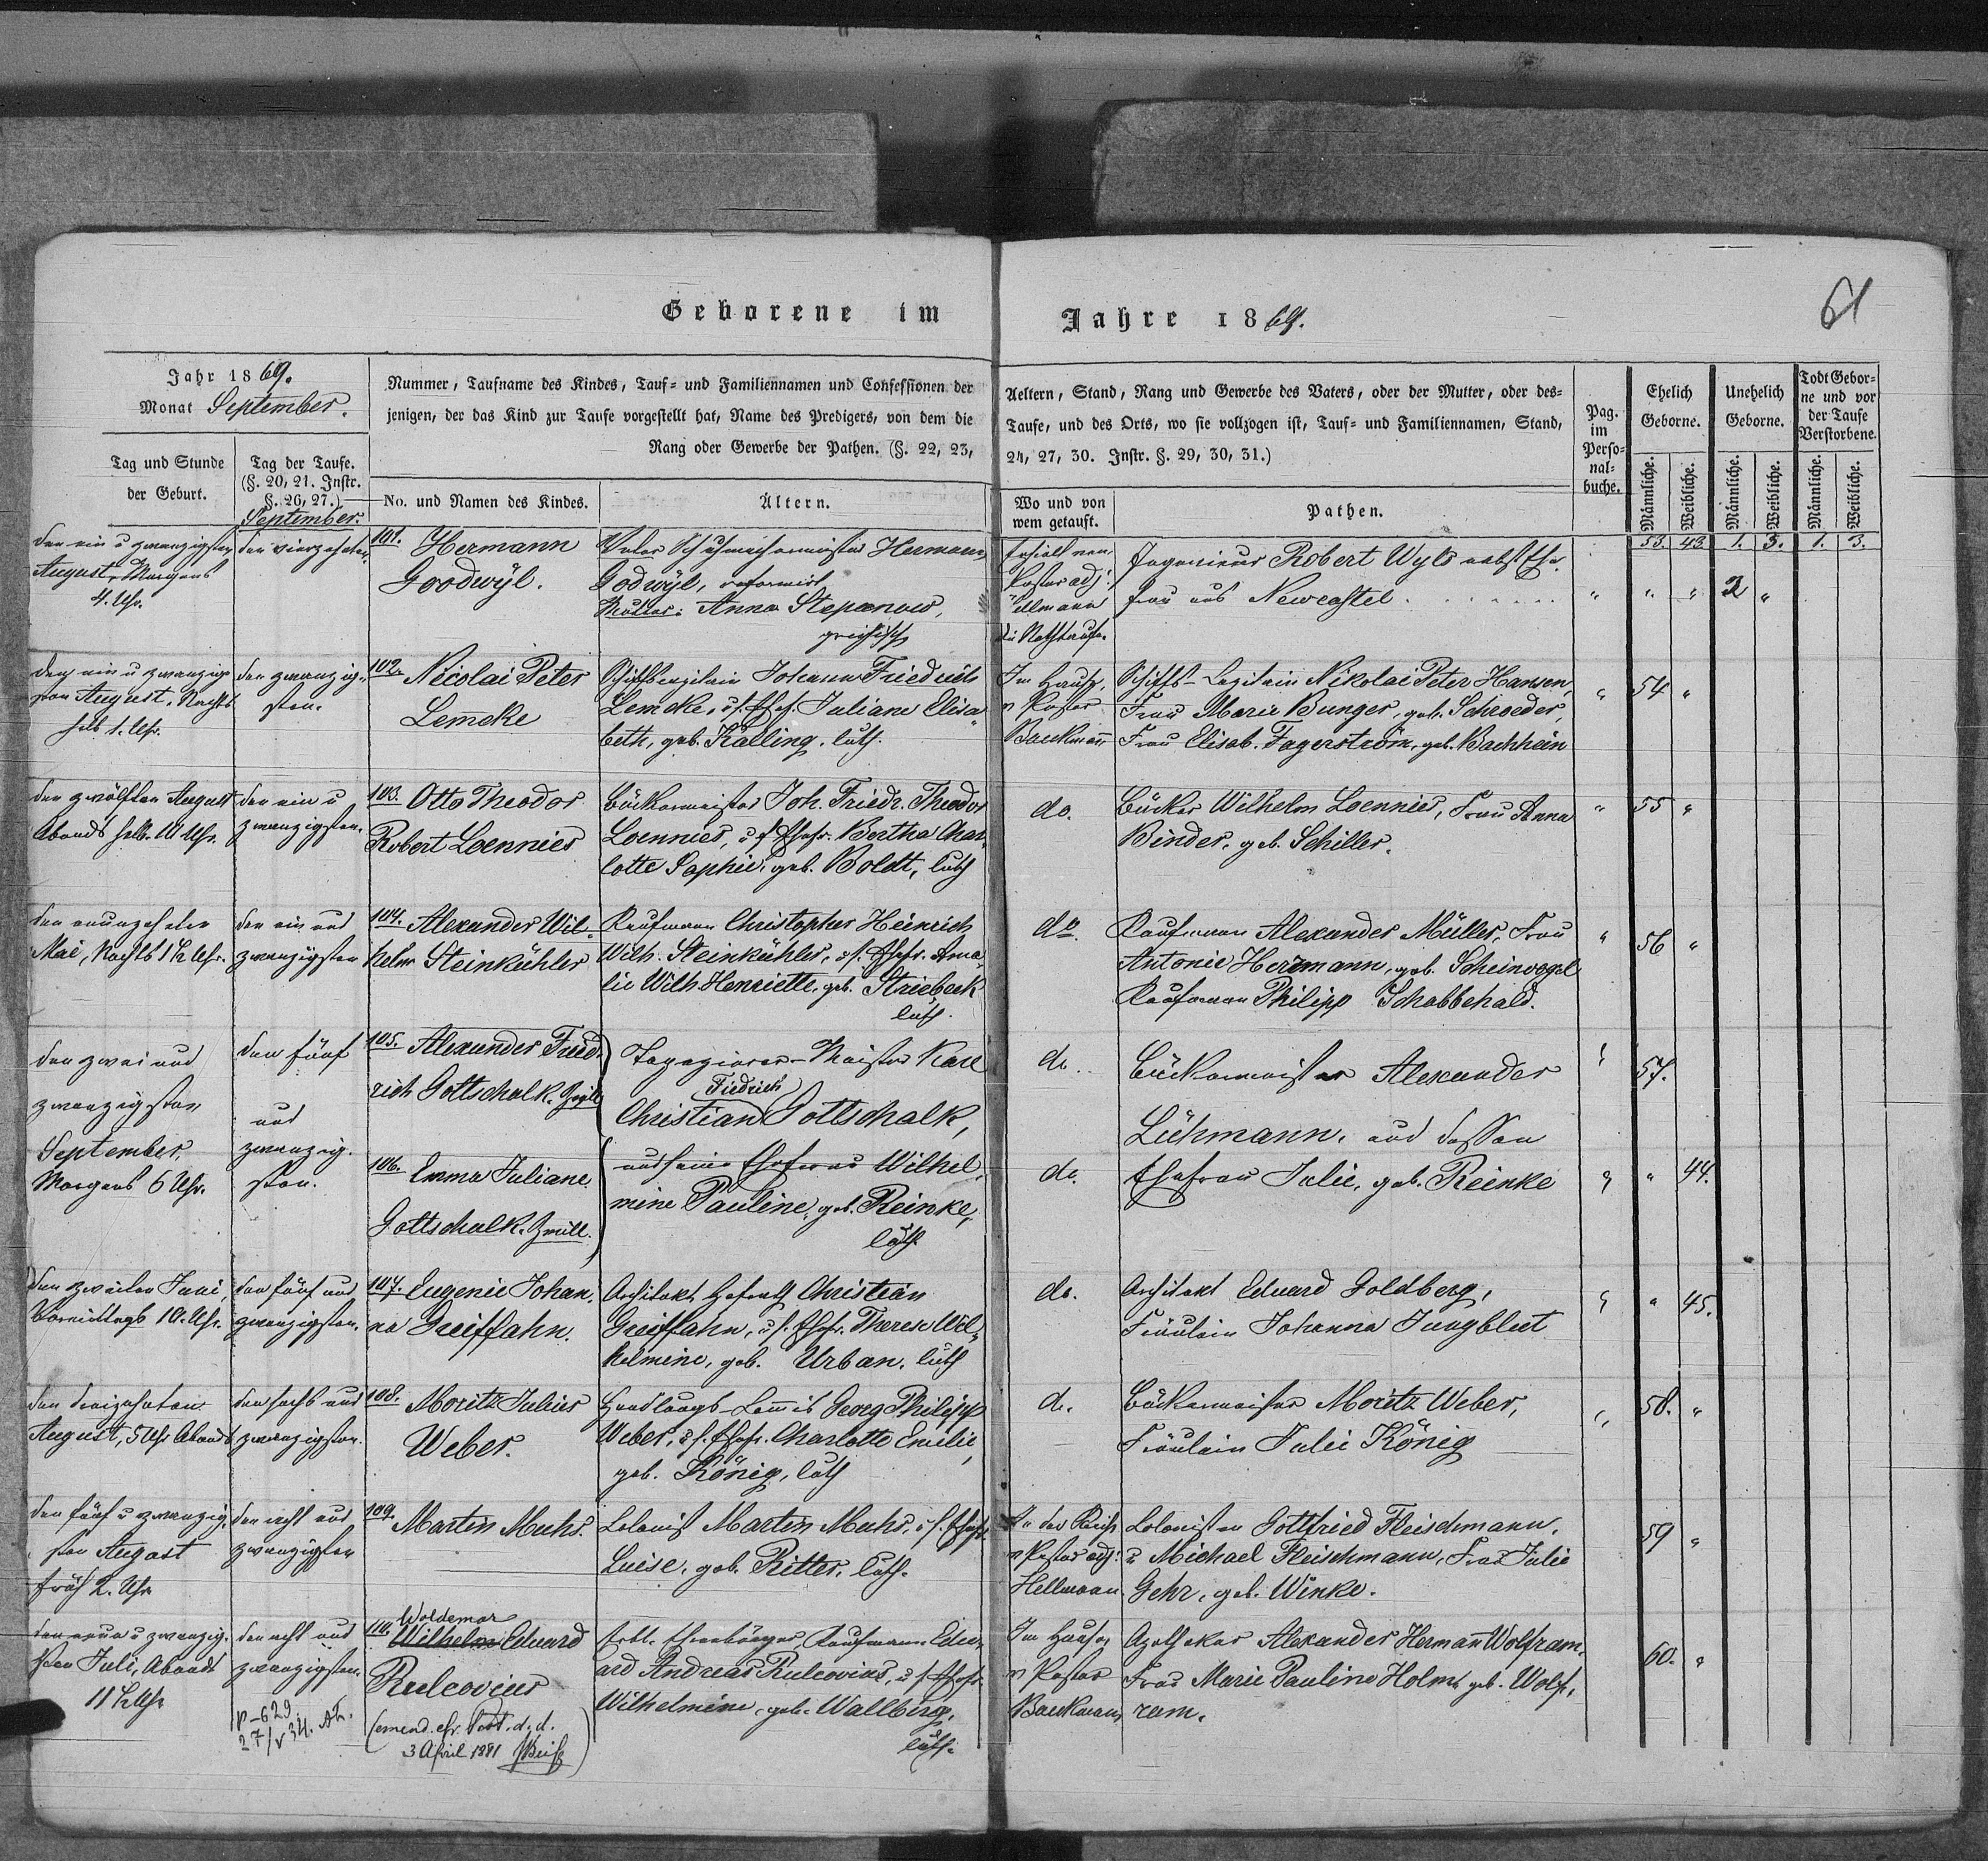 61
Geborene im Jahre 1869.
Jahr 1869.
Monat September.
Nummer, Taufname des Kindes, Tauf- und Familiennamen und Confessionen der
jenigen, der das Kind zur Taufe vorgestellt hat, Name des Predigers, von dem die
Rang oder Gewerbe der Pathen. (§. 22, 23,
Aeltern, Stand, Rang und Gewerbe des Vaters, oder der Mutter, oder des-
Taufe, und des Orts, wo sie vollzogen ist, Tauf- und Familiennamen, Stand,
24, 27, 30. Instr. §. 29, 30, 31.)
Tag und Stunde
der Geburt.
Tag der Taufe.
(§. 20, 21. Instr.
§. 26, 27.)
September.
No. und Namen des Kindes.
Ältern.
Wo und von
wem getauft.
Pathen.
Pag.
im
Perso-
nal-
buche.
Ehelich
Geborne.
Unehelich
Geborne.
Todt Gebor-
ne und vor
der Taufe
Verstorbene.
Männliche.
Weibliche.
Männliche.
Weibliche.
Männliche.
Weibliche.
53. 43. 1. 3. 1. 3.
den ein u zwanzigsten
August, Morgens
4. Uhr.
den vierzehnten.
101. Hermann
Goodwÿl.
Vater Schuhmachermeister Hermann
Godwÿl, reformirt
Mutter: Anna Stepanow,
griechisch
Pastor adj:
die Nothtaufe.
Ingenieur Robert Wylo nebst Ehe-
frau aus Newcastel
" " " 2 "
den ein u zwanzig-
sten August, Nachts
halb 1. Uhr.
den zwanzig-
sten.
102. Nicolai Peter
Lemcke
Schiffscapitain Johann Friedrich
Lemcke, u s. Ehefr. Juliane Elisa-
beth, geb. Kalling. luth.
Im Hause,
v Pastor
Backmann
Schiffs-Capitain Nikolai Peter Hansen,
Frau Marie Bunger, geb. Schroeder,
Frau Elisab. Fagerström, geb. Bachhein
" 54 "
den zwölften August
Abends halb 11 Uhr.
den ein u
zwanzigsten.
103. Otto Theodor
Robert Loennies
Bäckermeister Joh. Friedr. Theodor
Loennies, u s. Ehefr. Bertha Char-
lotte Sophie, geb. Boldt, luth
do.
Bäcker Wilhelm Loennies, Frau Anna
Binder, geb. Schiller.
" 55 "
den neunzehnten
Mai, Nachts 1½ Uhr.
den ein und
zwanzigsten
104. Alexander Wil-
helm Steinkühler
Kaufmann Christopher Heinrich
Wilh. Steinkühler, u s. Ehefr. Ama-
lie Wilh. Henriette, geb. Striebeck
luth.
do.
Kaufmann Alexander Müller, Frau
Antonie Herrmann, geb. Scheinvogel
Kaufmann Philipp Schabbehald.
" 56 "
den zwei und
zwanzigsten
September,
Morgens 6 Uhr.
den fünf
und
zwanzig-
sten.
105. Alexander Fried-
rich Gottschalk. Zwill
Tapezierer-Meister Karl
Fiedrich
Christian Gottschalk,
do.
Bäckermeister Alexander
Lühmann, und dessen
57.
106. Emma Juliane
Gottschalk. Zwill.
und seine Ehefrau Wilhel-
mine Pauline, geb. Reinke,
luth.
do.
Ehefrau Julie, geb. Reinke
" 44.
den zweiten Juni,
Vormittags 10. Uhr.
den fünf und
zwanzigsten.
107. Eugenie Johan-
na Greiffahn.
Architekt Christian
Greiffahn, u s. Ehefr. Therese Wil-
helmine, geb. Urban. luth
do.
Architekt Eduard Goldberg,
Fräulein Johanna Jungblut
" 45.
den dreizehnten
August, 5 Uhr Abends
den sechs und
zwanzigsten.
108. Moritz Julius
Weber.
Handlungs-Commis Georg Philipp
Weber, u s. Ehefr. Charlotte Emilie,
geb. König, luth
do.
Bäckermeister Moritz Weber,
Fräulein Julie König
" 58. "
den fünf u zwanzig-
sten August
früh 2. Uhr
den acht und
zwanzigsten
109. Martin Muhs.
Colonist Martin Muhs, u s. Ehefr.
Luise, geb. Ritter, luth.
In der Kirche
v Pastor adj:
Hellmann
Colonisten Gottfried Fleischmann,
u Michael Fleischmann, Frau Julie
Gehr, geb. Winke.
59 "
den neun u zwanzig-
sten Juli, Abends
11½ Uhr
den acht und
zwanzigsten.
110. Woldemar
Wilhelm Eduard
Rulcovius
(emend. cfr. Prot. d. d.
3 April 1881
erbl. Ehrenbürger, Kaufmann Edu-
ard Andreas Rulcovius, u s. Ehefr.
Wilhelmine, geb. Wallberg,
luth.
Im Hause
v Pastor
Backmann
Apotheker Alexander Hermann Wolfram,
Frau Marie Pauline Holm, geb. Wolf-
ram.
60. "